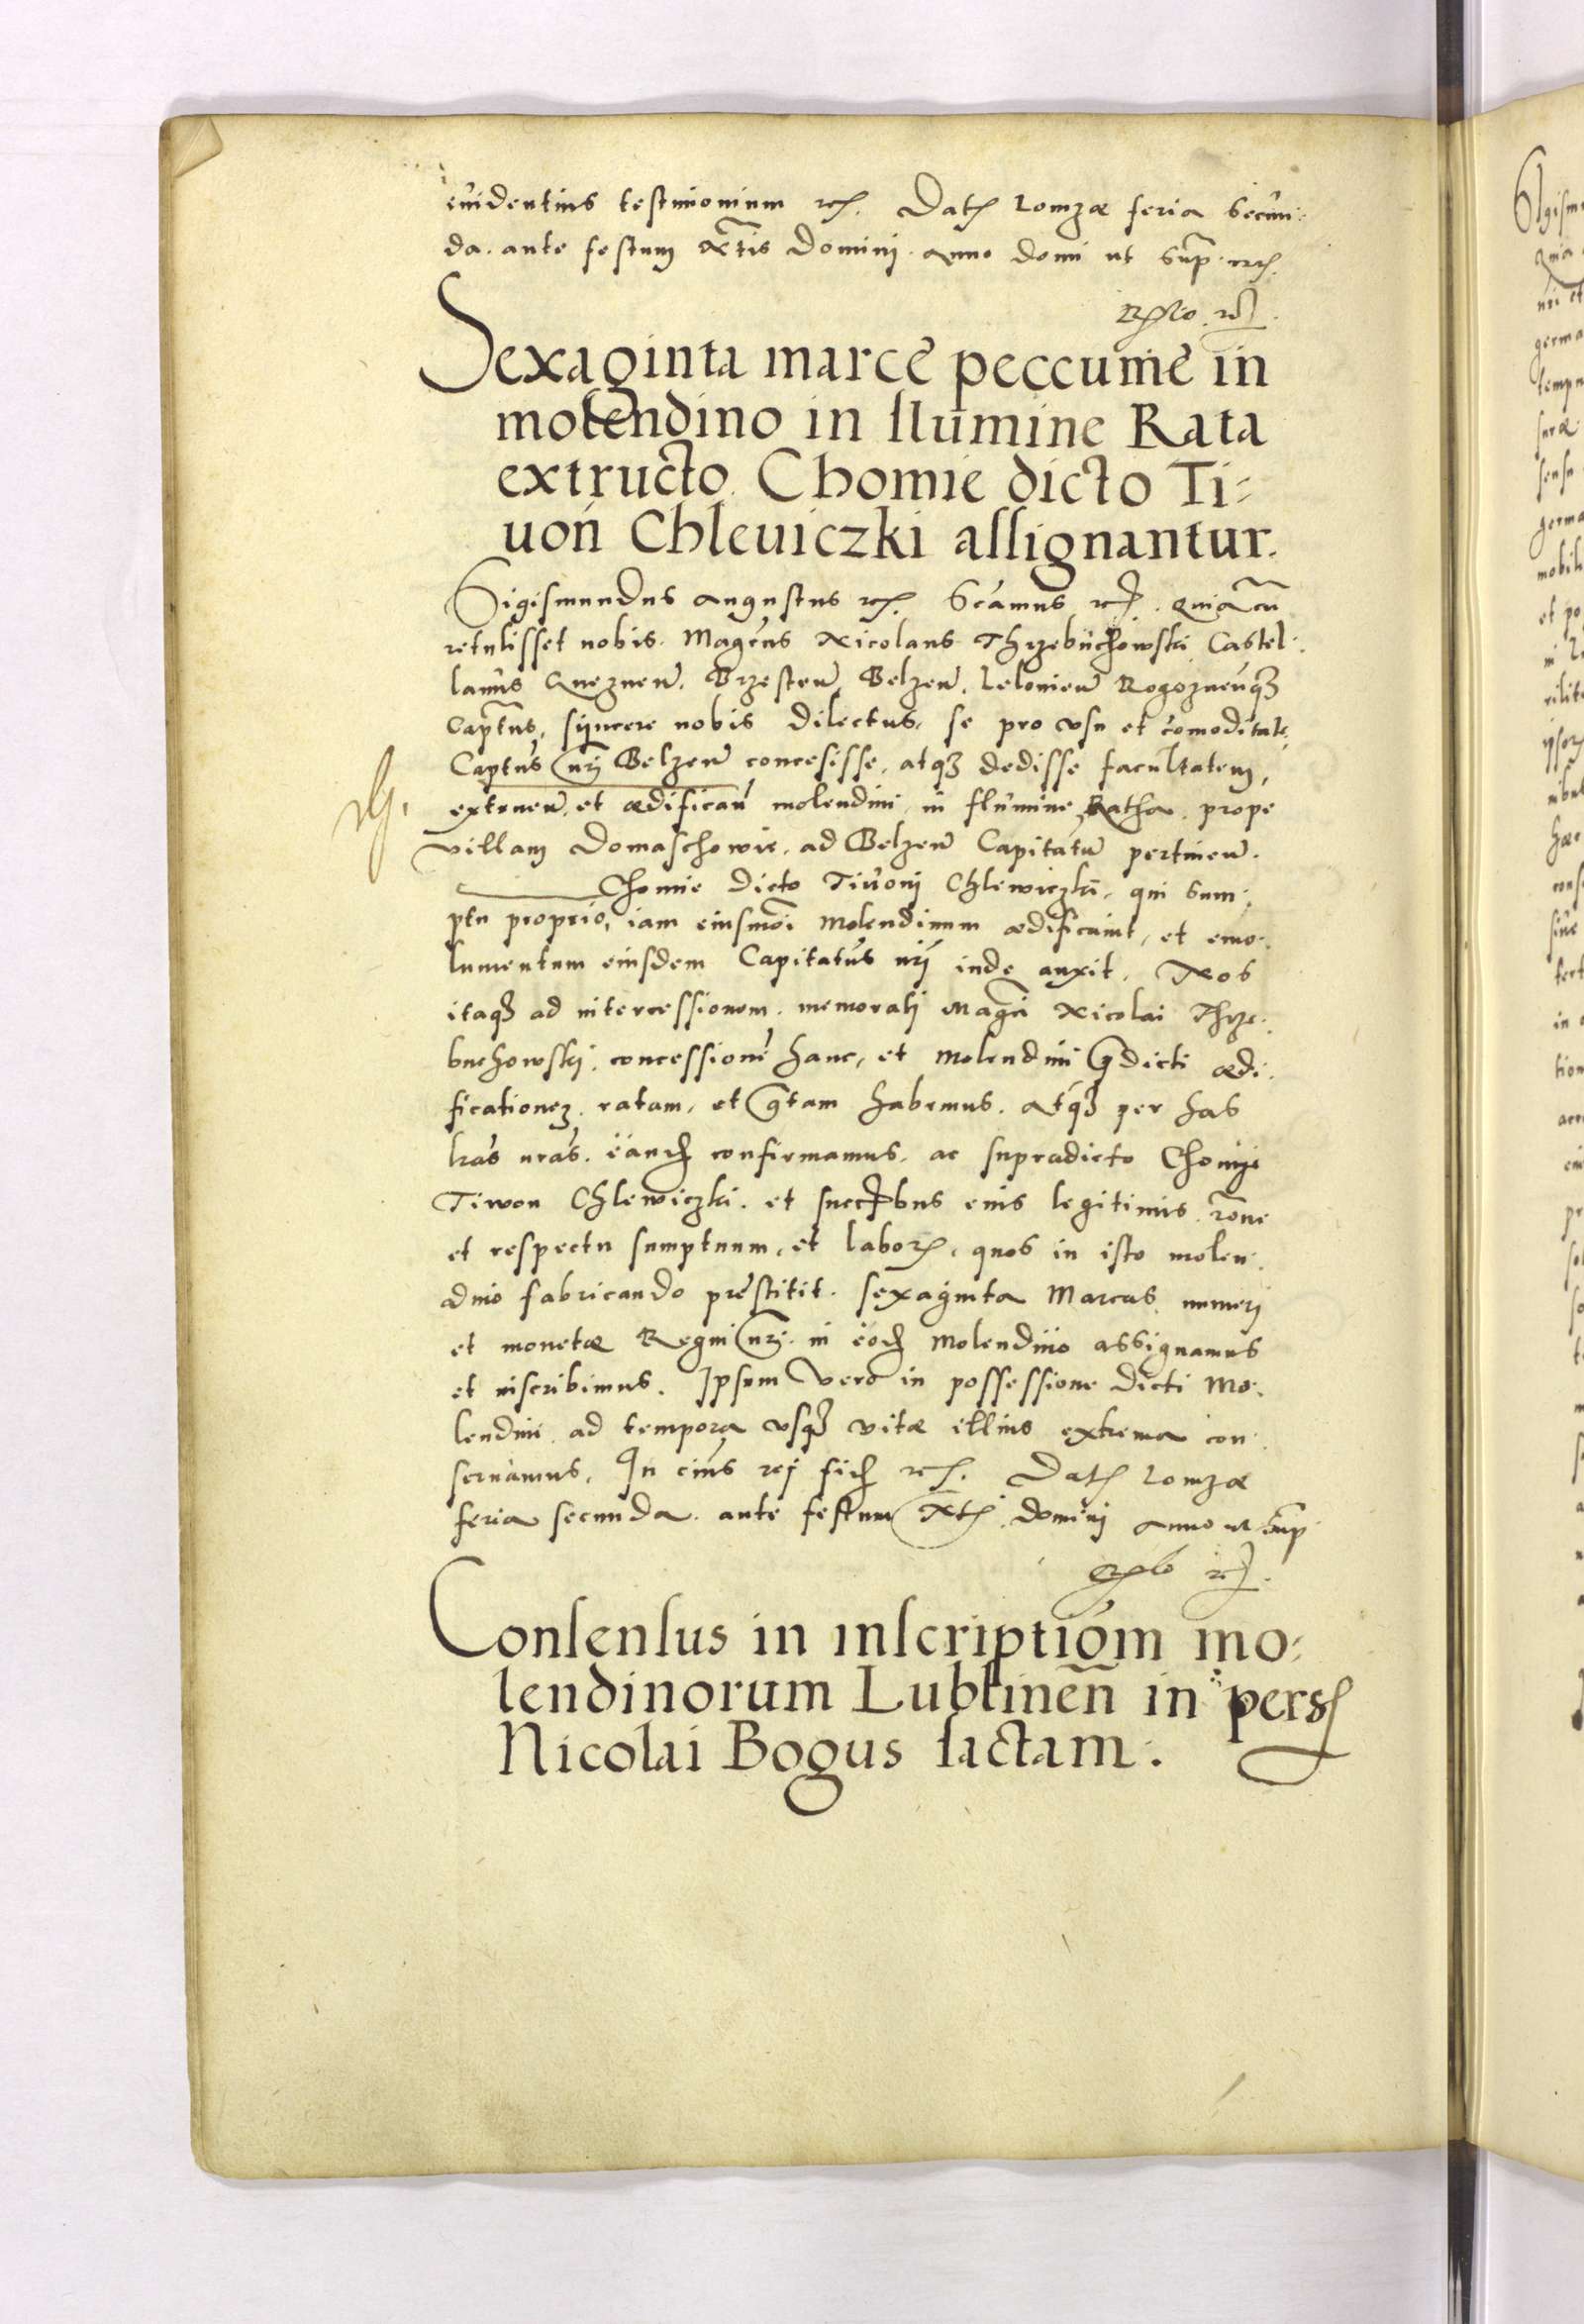 euidentius testimonium etc. Dat. Lomzæ feria Secun:
da. ante festum Nat̃tis Domini. anno domi ut Supr. etc.
Sexaginta marce peccunie in
molendino in flumine Rata
extructo Chomie dicto Ti:
uon Chleuiczki assignantur.
Sigismundus Augustus etc. Scamus etc. Quia cu
retulisset nobis. Magcus Nicolaus Thrzebuchowski Castel:
lanus Gneznen. Brzesten, Belzen, Lelouien Rogoznenq3
Captus, syncere nobis dilectus, se pro vsu et comoditate
Captus nri Belzen concesisse, atq3 dedisse facultatem,
extruen. et ædifican molendini in flumine Ratha. prope
villam Domaschowie. ad Belzen Capitatu pertinen.
Chomie dicto Tiuoni Chlewiczki, qui Sum:
ptu proprio, iam eiusmoi Molendinum ædificauit, et emo:
lumentum eiusdem Capitatus nri inde auxit. Nos
itaq3 ad intercessionem. memorati Magci Nicolai Thrze:
buchowski. concessione hanc, et Molendini pdicti ædi:
ficationem. ratam, et gtam habemus. Atq3 per has
lras nras. eand confirmamus. ac supradicto Chomie
Tiwon Chlewiczki. et succribus eius legitimis. rone
et respectu sumptuum, et labor, quos in isto molen:
dino fabricando prestitit. sexaginta Marcas. numeri
et monetæ Regni nri. in eod Molendino assignamus
et inscribimus. Ipsum vero in possessione dicti Mo:
lendini. ad tempora vsq3 vitæ illius extrema con:
seruamus. In cuius rei fid etc. Dat. Lomzæ
feria secunda. ante festum Nat. domini anno ut Sup
Consensus in inscriptiom mo:
lendinorum Lublinen in pers
Nicolai Bogus factam.